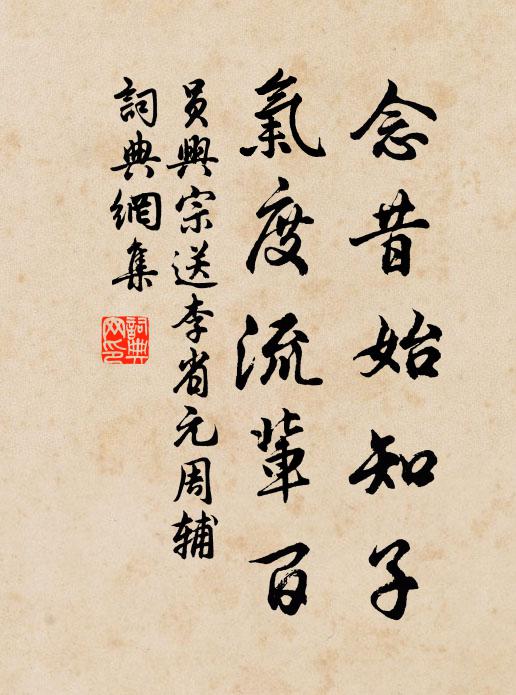 念昔始知子
氣度流輩百
員興宗送李省元周辅
詞典網集
詞典
网印